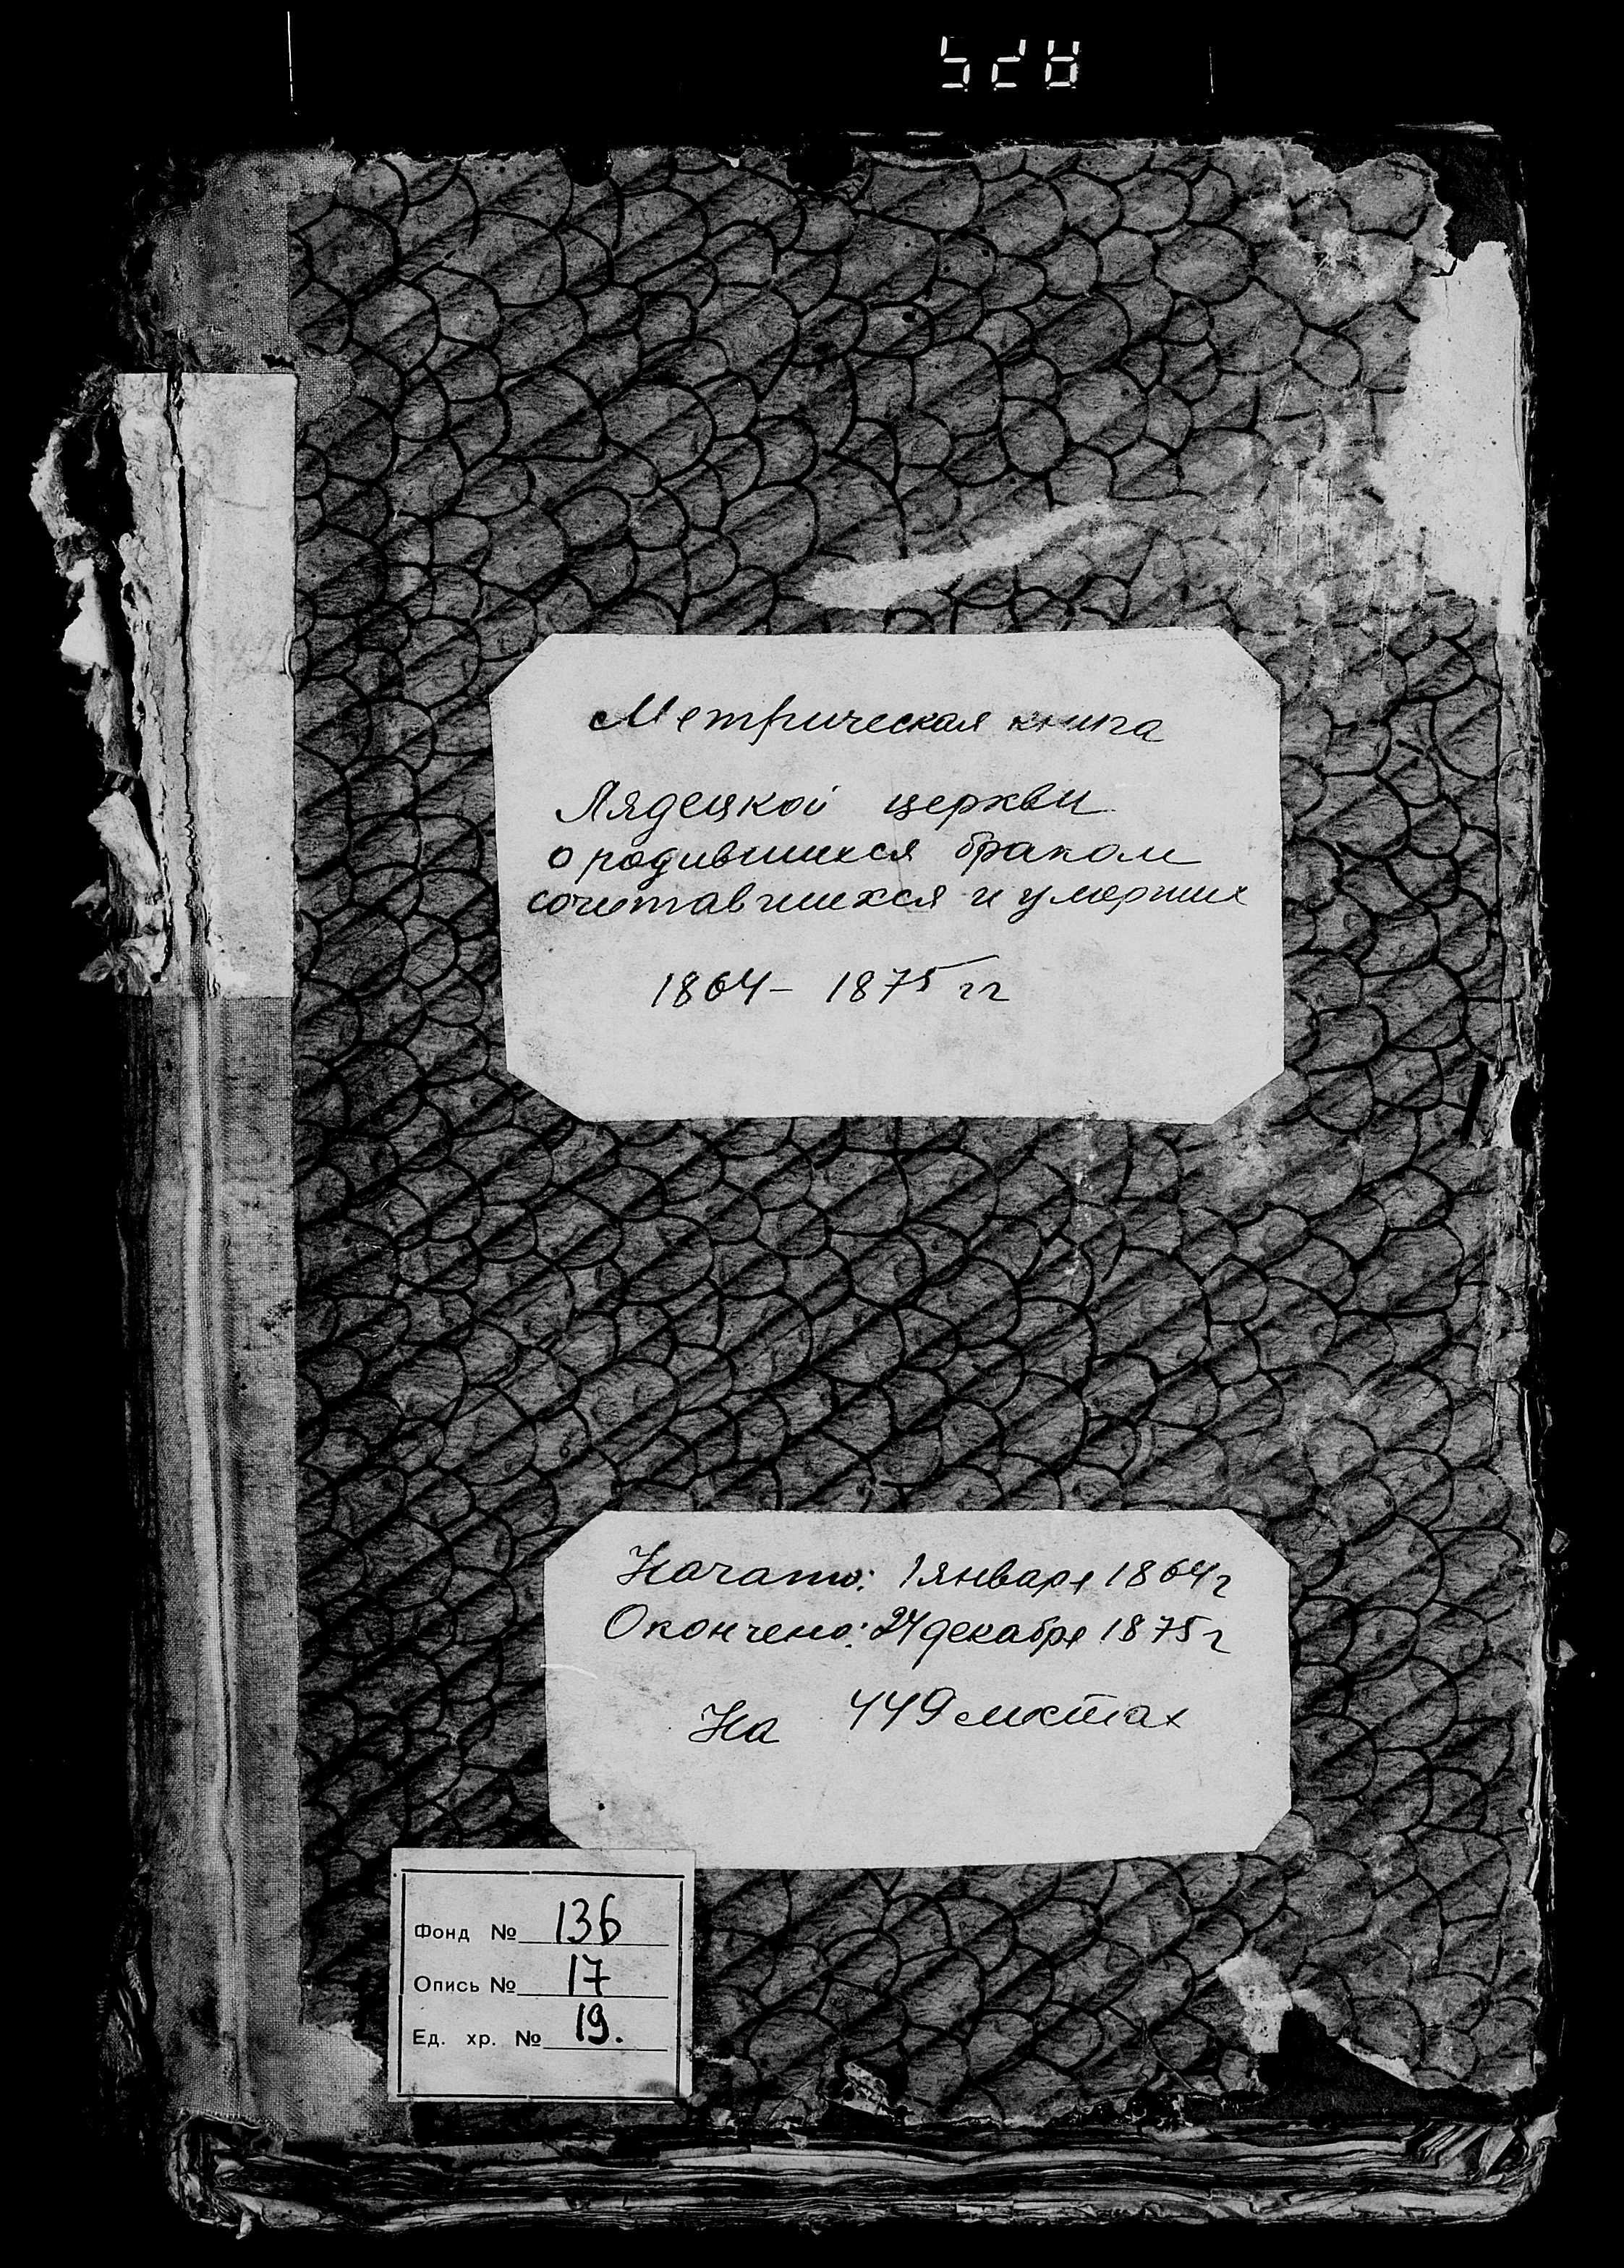 Метрическая книга
Лядецкой церкви
о родившихся браком
сочетавшихся и умерших
1864 - 1875 гг
Начато: 1 января 1864 г
Окончено: 24 декабря 1875 г
На 449 листах
Фонд № 136
Опись № 17
Ед. хр. № 19.